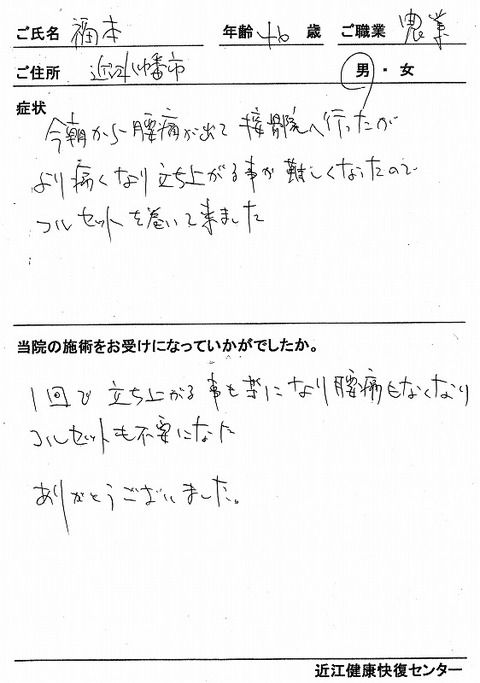 ご氏名 福本 年齢 46 歳 ご職業 農業
ご住所 近江八幡市 男・女
症状
今朝から腰痛が出て接骨院へ行ったが
より痛くなり立ち上がる事が難しくなったので
コルセットを巻いて来ました
当院の施術をお受けになっていかがでしたか。
1回で立ち上がる事も楽になり腰痛もなくなり
コルセットも不要になった
ありがとうございました。
近江健康快復センター